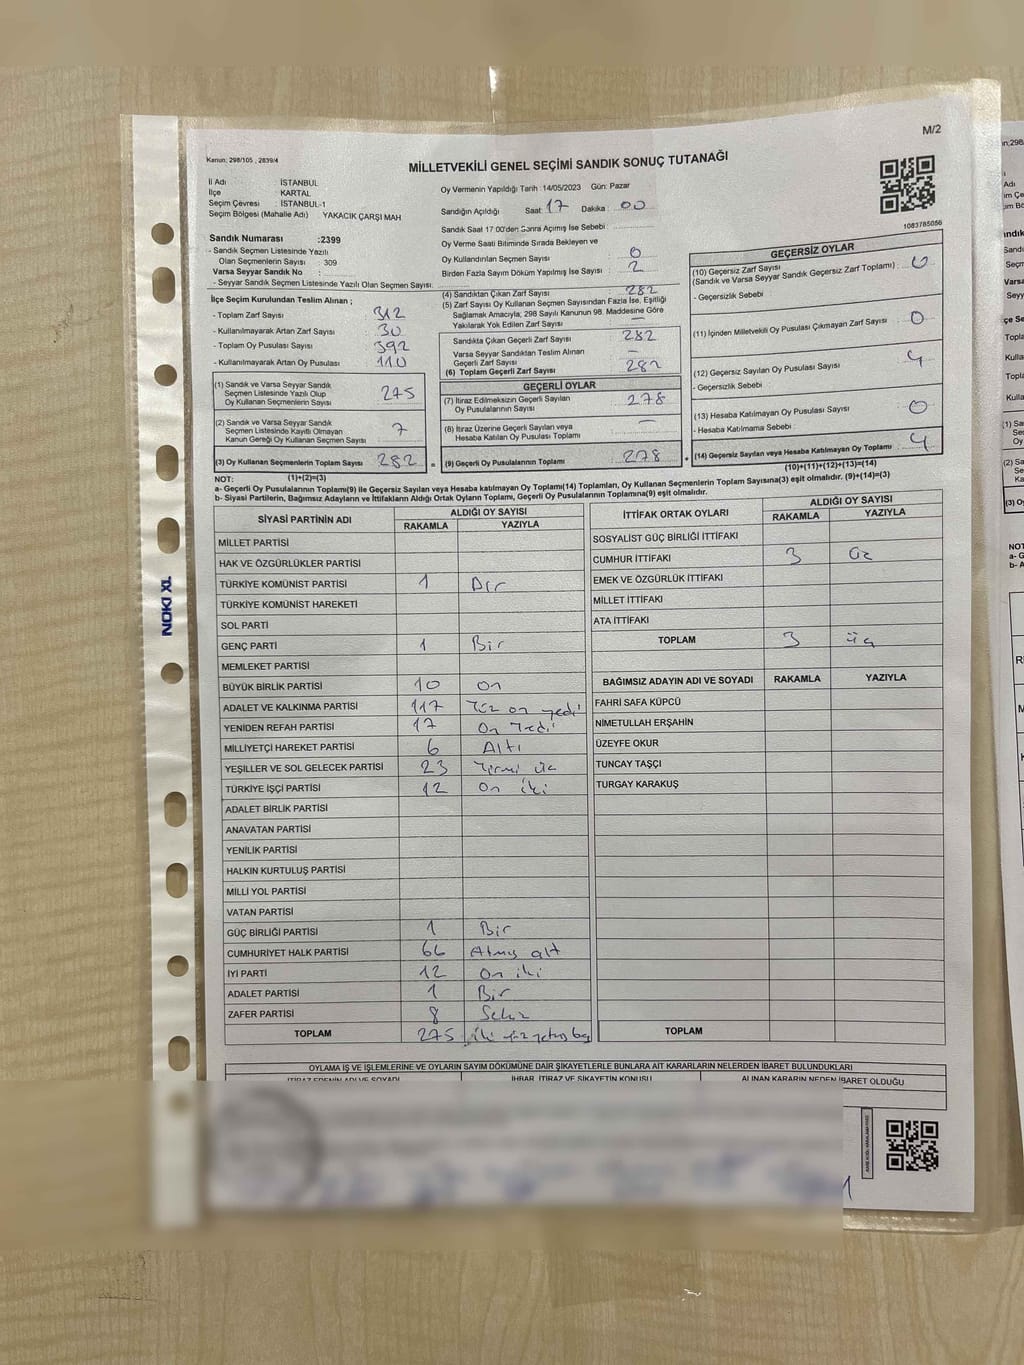 M/2
Kanun; 298/105 , 2839/4
MİLLETVEKİLİ GENEL SEÇİMİ SANDIK SONUÇ TUTANAĞI
İl Adı : İSTANBUL
İlçe : KARTAL
Seçim Çevresi : İSTANBUL-1
Seçim Bölgesi (Mahalle Adı) YAKACIK ÇARŞI MAH
Sandık Numarası :2399
- Sandık Seçmen Listesinde Yazılı
Olan Seçmenlerin Sayısı : 309
Varsa Seyyar Sandık No :
- Seyyar Sandık Seçmen Listesinde Yazılı Olan Seçmen Sayısı:
Oy Vermenin Yapıldığı Tarih : 14/05/2023 Gün: Pazar
Sandığın Açıldığı Saat: 17 Dakika : 00
Sandık Saat 17:00'den Sonra Açılmış İse Sebebi :
Oy Verme Saati Bitiminde Sırada Bekleyen ve
Oy Kullandırılan Seçmen Sayısı : 0
Birden Fazla Sayım Döküm Yapılmış İse Sayısı : 2
1083785056
İlçe Seçim Kurulundan Teslim Alınan ;
- Toplam Zarf Sayısı : 312
- Kullanılmayarak Artan Zarf Sayısı : 30
- Toplam Oy Pusulası Sayısı : 392
- Kullanılmayarak Artan Oy Pusulası : 110
(1) Sandık ve Varsa Seyyar Sandık
Seçmen Listesinde Yazılı Olup
Oy Kullanan Seçmenlerin Sayısı 275
(2) Sandık ve Varsa Seyyar Sandık
Seçmen Listesinde Kayıtlı Olmayan
Kanun Gereği Oy Kullanan Seçmen Sayısı 7
(3) Oy Kullanan Seçmenlerin Toplam Sayısı 282
(1)+(2)=(3)
(4) Sandıktan Çıkan Zarf Sayısı : 282
(5) Zarf Sayısı Oy Kullanan Seçmen Sayısından Fazla İse, Eşitliği
Sağlamak Amacıyla; 298 Sayılı Kanunun 98. Maddesine Göre
Yakılarak Yok Edilen Zarf Sayısı : —
Sandıkta Çıkan Geçerli Zarf Sayısı : 282
Varsa Seyyar Sandıktan Teslim Alınan
Geçerli Zarf Sayısı : —
(6) Toplam Geçerli Zarf Sayısı : 282
GEÇERLİ OYLAR
(7) İtiraz Edilmeksizin Geçerli Sayılan
Oy Pusulalarının Sayısı : 278
(8) İtiraz Üzerine Geçerli Sayılan veya
Hesaba Katılan Oy Pusulası Toplamı : —
= (9) Geçerli Oy Pusulalarının Toplamı : 278
GEÇERSİZ OYLAR
(10) Geçersiz Zarf Sayısı
(Sandık ve Varsa Seyyar Sandık Geçersiz Zarf Toplamı) : 0
- Geçersizlik Sebebi
(11) İçinden Milletvekili Oy Pusulası Çıkmayan Zarf Sayısı : 0
(12) Geçersiz Sayılan Oy Pusulası Sayısı : 4
- Geçersizlik Sebebi
(13) Hesaba Katılmayan Oy Pusulası Sayısı : 0
- Hesaba Katılmama Sebebi :
+ (14) Geçersiz Sayılan veya Hesaba Katılmayan Oy Toplamı : 4
(10)+(11)+(12)+(13)=(14)
NOT:
a- Geçerli Oy Pusulalarının Toplamı(9) ile Geçersiz Sayılan veya Hesaba Katılmayan Oy Toplamı(14) Toplamları, Oy Kullanan Seçmenlerin Toplam Sayısına(3) eşit olmalıdır. (9)+(14)=(3)
b- Siyasi Partilerin, Bağımsız Adayların ve İttifakların Aldığı Ortak Oyların Toplamı, Geçerli Oy Pusulalarının Toplamına(9) eşit olmalıdır.
SİYASİ PARTİNİN ADI ALDIĞI OY SAYISI
RAKAMLA YAZIYLA
MİLLET PARTİSİ
HAK VE ÖZGÜRLÜKLER PARTİSİ
TÜRKİYE KOMÜNİST PARTİSİ 1 Bir
TÜRKİYE KOMÜNİST HAREKETİ
SOL PARTİ
GENÇ PARTİ 1 Bir
MEMLEKET PARTİSİ
BÜYÜK BİRLİK PARTİSİ 10 On
ADALET VE KALKINMA PARTİSİ 117 Yüz on yedi
YENİDEN REFAH PARTİSİ 17 On Yedi
MİLLİYETÇİ HAREKET PARTİSİ 6 Altı
YEŞİLLER VE SOL GELECEK PARTİSİ 23 Yirmi üç
TÜRKİYE İŞÇİ PARTİSİ 12 On iki
ADALET BİRLİK PARTİSİ
ANAVATAN PARTİSİ
YENİLİK PARTİSİ
HALKIN KURTULUŞ PARTİSİ
MİLLİ YOL PARTİSİ
VATAN PARTİSİ
GÜÇ BİRLİĞİ PARTİSİ 1 Bir
CUMHURİYET HALK PARTİSİ 66 Atmış altı
İYİ PARTİ 12 On iki
ADALET PARTİSİ 1 Bir
ZAFER PARTİSİ 8 Sekiz
TOPLAM 275 iki yüz yetmiş beş
İTTİFAK ORTAK OYLARI ALDIĞI OY SAYISI
RAKAMLA YAZIYLA
SOSYALİST GÜÇ BİRLİĞİ İTTİFAKI
CUMHUR İTTİFAKI 3 üç
EMEK VE ÖZGÜRLÜK İTTİFAKI
MİLLET İTTİFAKI
ATA İTTİFAKI
TOPLAM 3 üç
BAĞIMSIZ ADAYIN ADI VE SOYADI RAKAMLA YAZIYLA
FAHRİ SAFA KÜPCÜ
NİMETULLAH ERŞAHİN
ÜZEYFE OKUR
TUNCAY TAŞÇI
TURGAY KARAKUŞ
TOPLAM
OYLAMA İŞ VE İŞLEMLERİNE VE OYLARIN SAYIM DÖKÜMÜNE DAİR ŞİKAYETLERLE BUNLARA AİT KARARLARIN NELERDEN İBARET BULUNDUKLARI
İTİRAZ EDENİN ADI VE SOYADI İHBAR, İTİRAZ VE ŞİKAYETİN KONUSU ALINAN KARARIN NEDEN İBARET OLDUĞU
NOKI XL